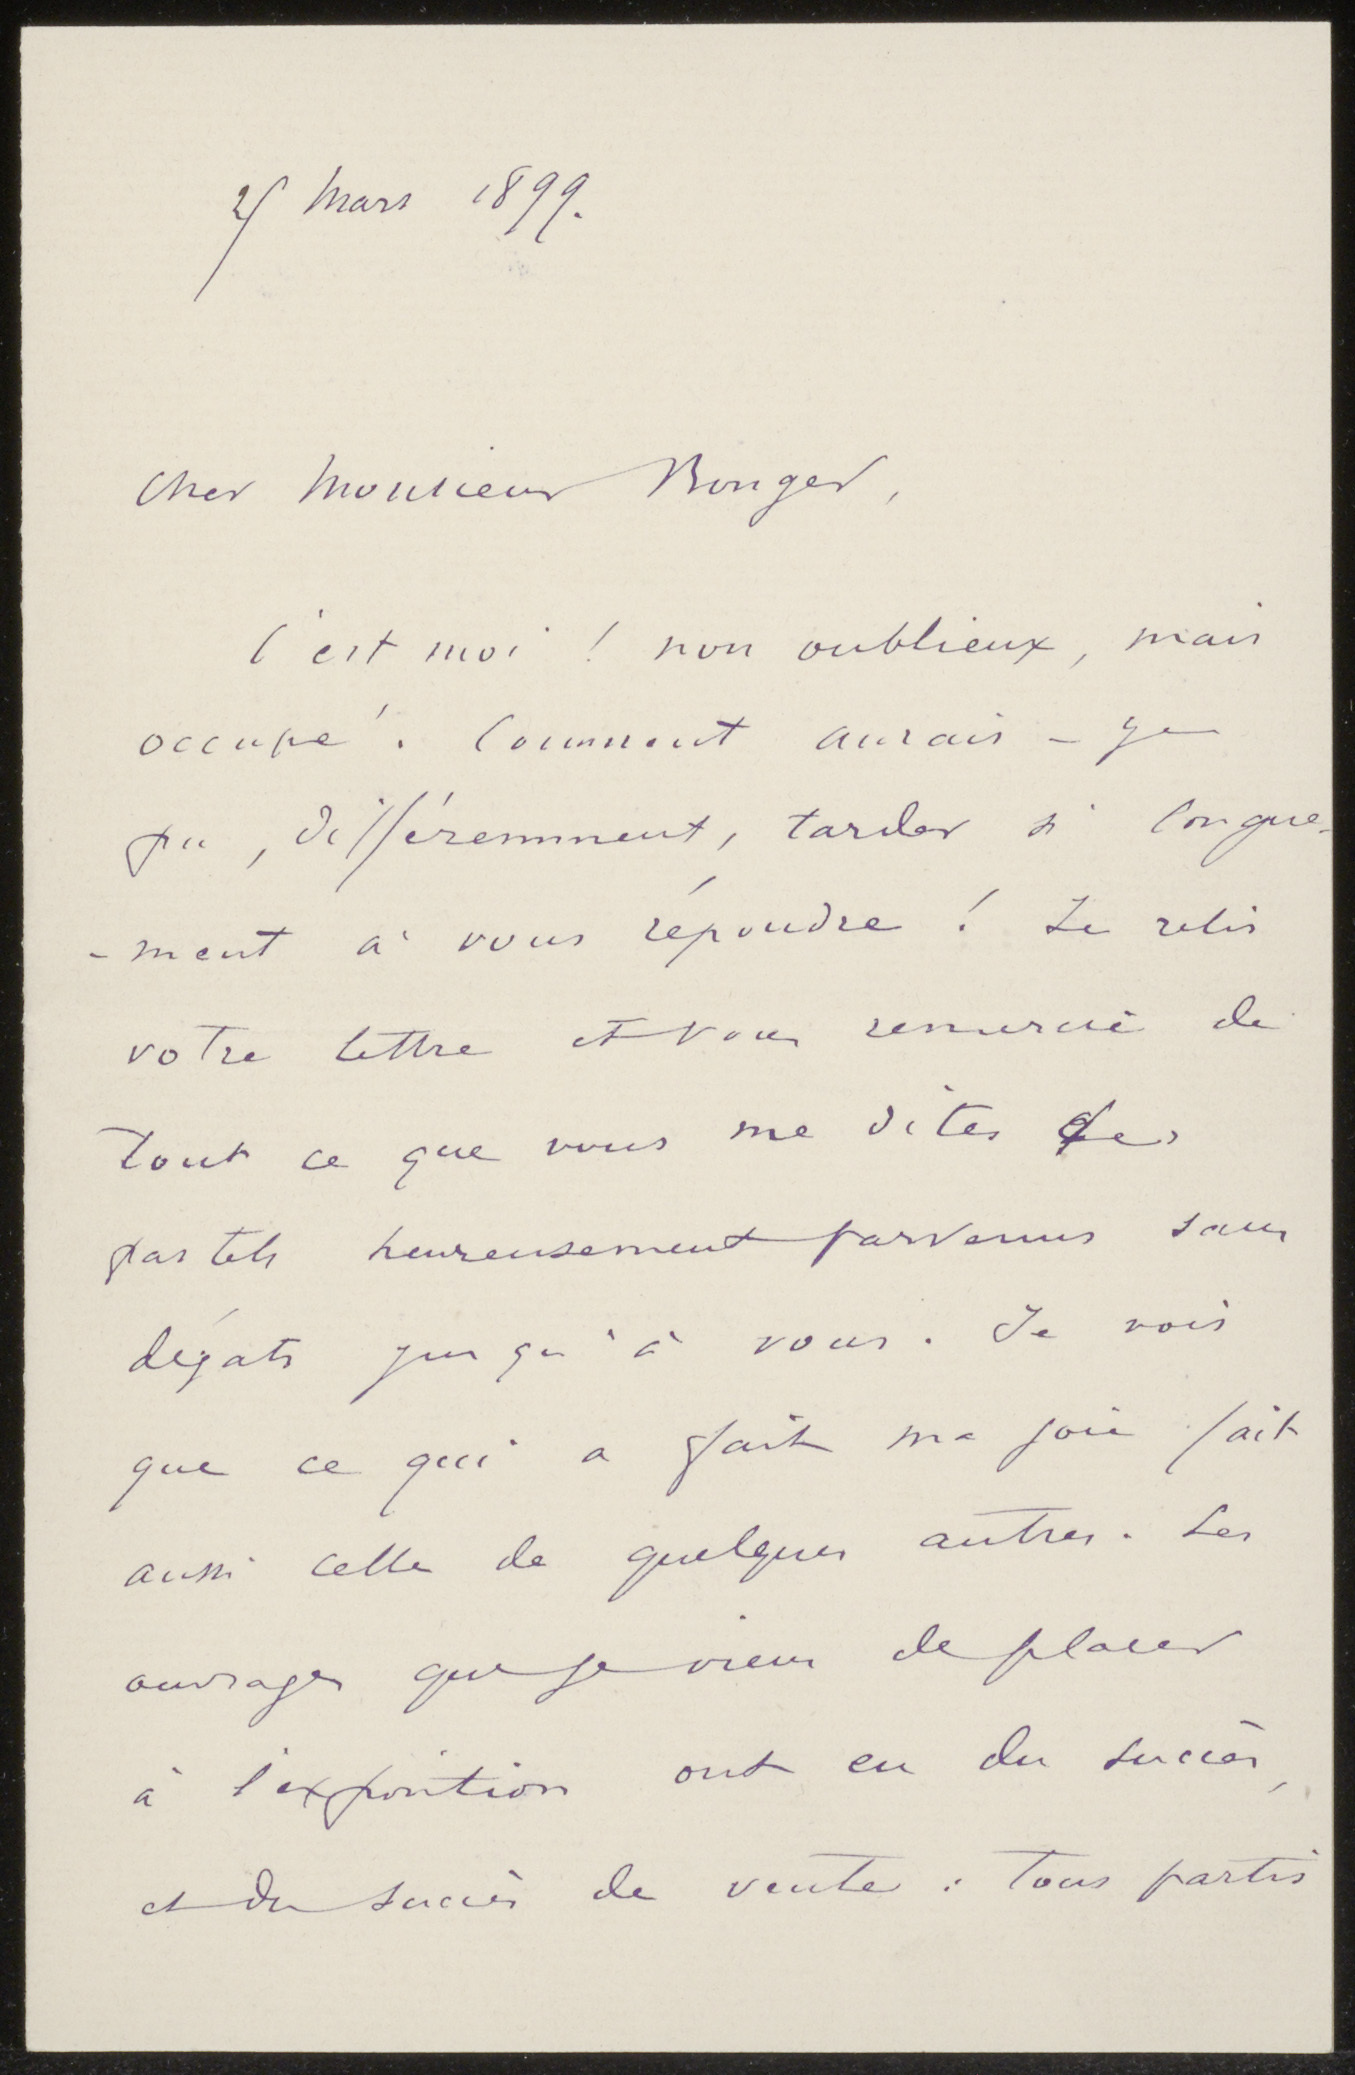 25 Mars 1899.
Cher Monsieur Bonger,
C'est moi ! non oublieux, mais
occupé. Comment aurais-je
pu, différemment, tarder si longue-
-ment à vous répondre ! Je relis
votre lettre et vous remercie de
tout ce que vous me dites des
pastels heureusement parvenus sans
dégats jusqu'à vous. Je vois
que ce qui a fait ma joie fait
aussi celle de quelques autres. Les
ouvrages que je viens de placer
à l'exposition ont eu du succès,
et du succès de vente : tous partis